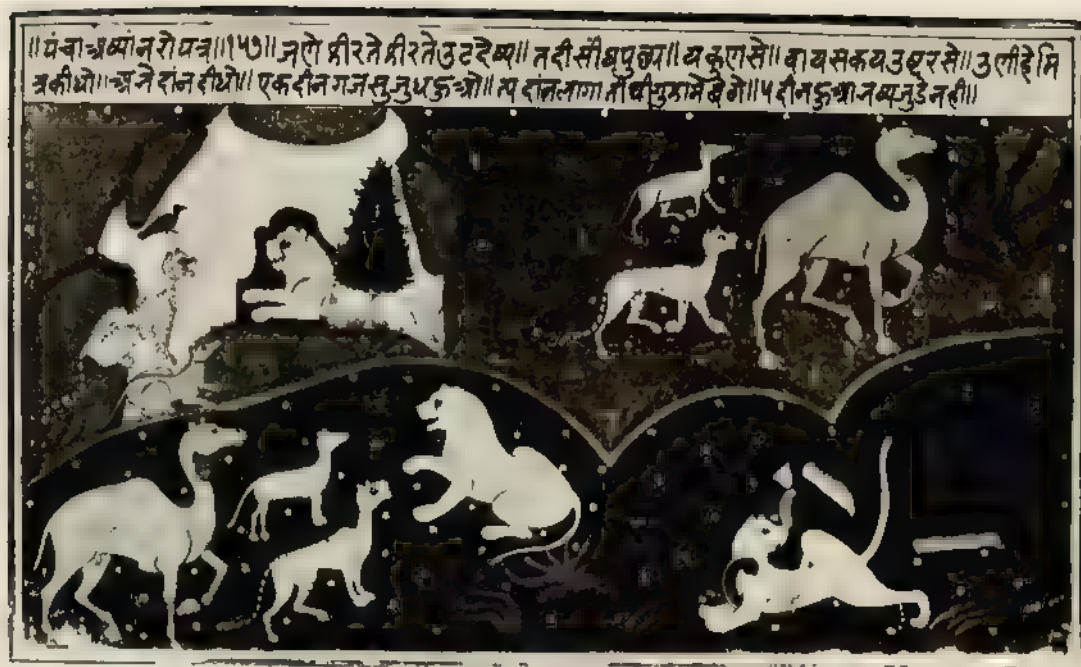 ॥पंचाख्यांनरोपत्र॥१५७॥जणे फीरते फीरते उट देष्य॥तदी सीघ पुछ्य॥य कुण से॥वायस कय उष्ट्र से॥उणी हे मि
त्र कीधो॥अने दांन दीधो॥एक दीन गज सु जुध हुओ॥ दांत लागा ती थी गुफा मे बेगे॥दीन हुआ नष्य जुडे नही॥